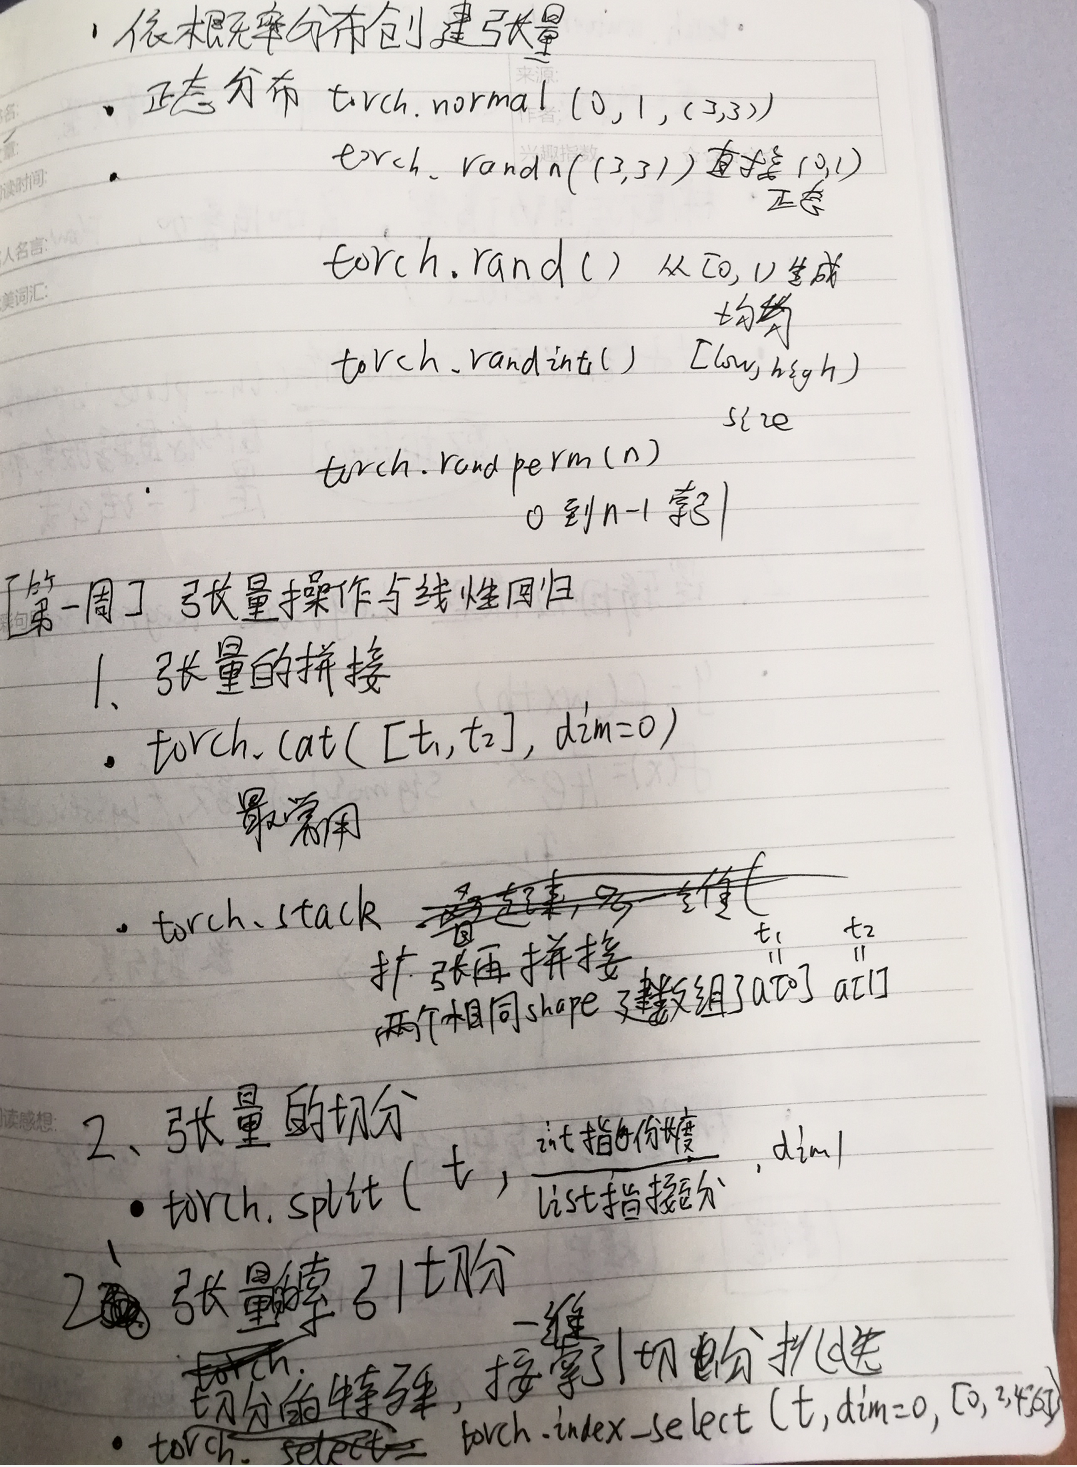 · 依概率分布创建张量
· 正态分布 torch.normal(0,1,(3,3))
· torch.randn((3,3)) 直接(0,1)
正态
torch.rand() 从[0,1)生成
均匀
torch.randint() [low,high)
size
torch.randperm(n)
0到n-1 索引
[第一周] 张量操作与线性回归
1、张量的拼接
· torch.cat([t1,t2], dim=0)
最常用
· torch.stack
扩张再拼接
t1 t2
两个相同shape 建数组 a[0] a[1]
2、张量的切分
· torch.split(t, int指每份长度 , dim)
list指按
2.1 张量的索引切分
一维
切分的特殊, 按索引切分挑选
· torch.index_select(t, dim=0, [0,2,4,5,6])